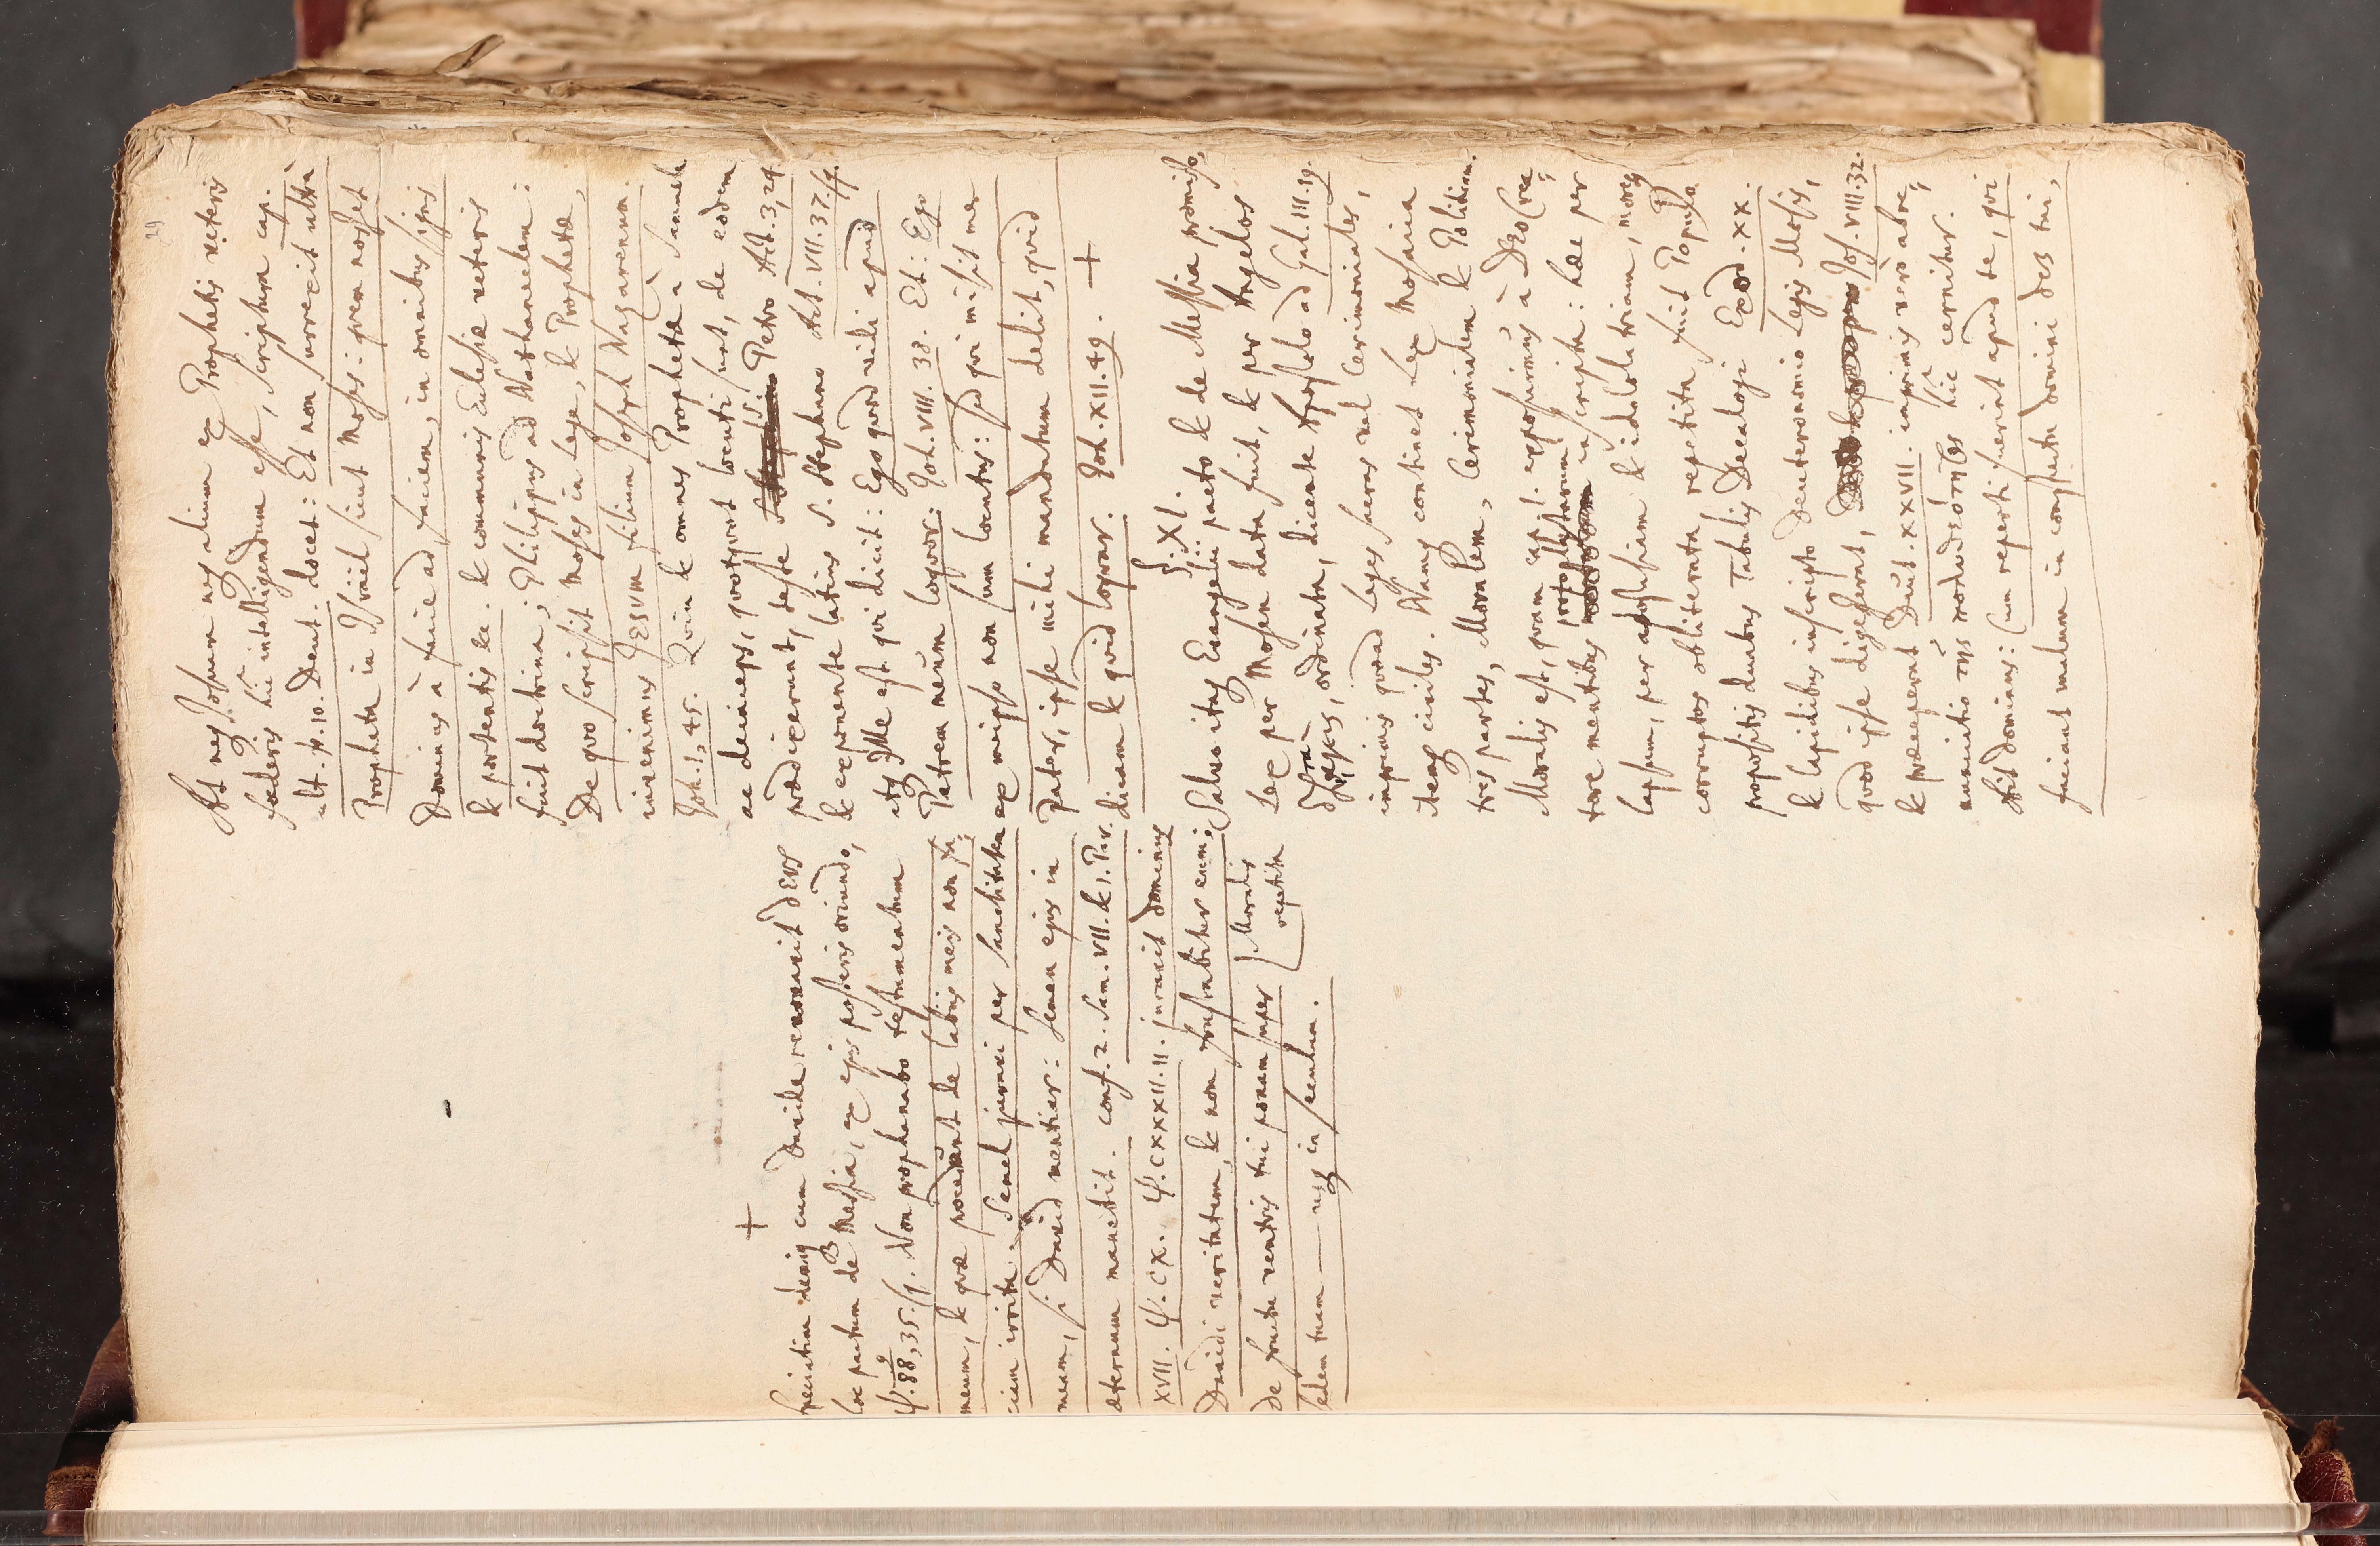 29
At neq; Josuam neq; alium ex Prophetis veteris
foederis hîc intelligendum esse, scriptura cap.
ult. ℣. 10. Deut. docet: Et non surrexit ultrà
Propheta in Israël sicut Moses: quem nosset
Dominus à facie ad faciem, in omnibus signis
& portentis &c. & communis Ecclesiæ veteris
fuit doctrina; Philippus ad Nathanaelem:
De quo scripsit Moses in Lege, & Prophetæ,
invenimus JESUM filium Joseph Nazarenum.
Joh. 1, 45. Quin & omnes Prophetæ à Samuele
ac deinceps, quotquot locuti sunt, de eodem
prædixerunt, teste S. Petro Act. 3, 24.
& exponente latius S. Stephano Act. VII. 37. ff.
itaq; Ille est qui dicit: Ego quod vidi apud
Patrem meum loquor: Joh. VIII. 38. Et: Ego
ex meipso non sum locutus: sed qui misit me
Pater, ipse mihi mandatum dedit, quid
dicam & quid loquar. Joh. XII. 49. +
§. XI.
Salvo itaq; Evangelii pacto & de Messia promisso,
Lex per Mosen data fuit, & per Angelos
disposita, ordinata, dicente Apostolo ad Gal. III. 19.
inprimis quoad Leges sacras vel Cerimoniales,
itemq; civiles. Namq; continet Lex Mosaica
tres partes, Moralem, Cerimonialem & Politicam.
Moralis est, quam cap. 1. exposuimus à DEO Crea-
tore mentibus protoplastorum inscripta: hæc per
lapsum, per apostasiam & idololatriam, mores
corruptos obliterata, repetita fuit Populo
propositis duabus Tabulis Decalogi Exod. XX.
& lapidibus inscripto Deuteronomio Legis Mosis,
quod ipse digesserat, Jos. VIII. 32.
& præceperat Deut. XXVII. inprimis verò abre-
nunciatio τῆς πολυθεότητος hîc cernitur.
Ait Dominus: Cum reperti fuerint apud te, qui
faciant malum in conspectu domini dei tui,
+
speciatim deniq; cum Davide renovavit DEUS
hoc pactum de Messia, ex ejus posteris oriundo,
Ψ. 88, 35. sq. Non prophanabo testamentum
meum, & quæ procedunt de labiis meis non fa-
ciam irrita. Semel juravi per sanctitatem
meam, si David mentiar: Semen ejus in
æternum manebit. conf. 2. Sam. VII. & 1. Par.
XVII. Ψ. CX. Ψ. CXXXII. 11. juravit dominus
Davidi veritatem, & non frustrabitur eum:
De fructu ventris tui ponam super
sedem tuam — usq; in secula.
Moralis
repetita